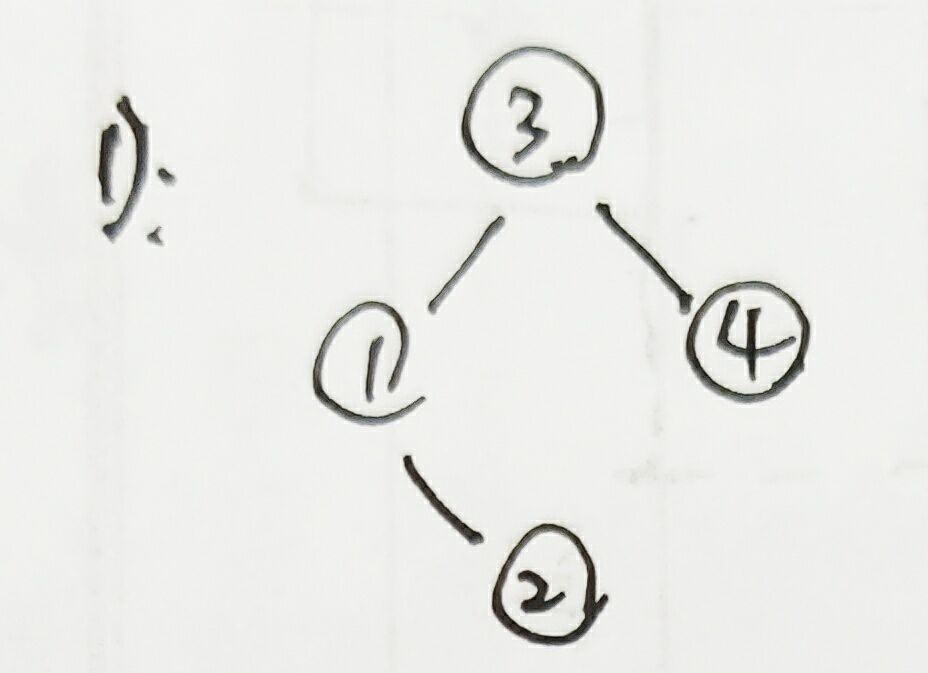 1):
3
1
4
2